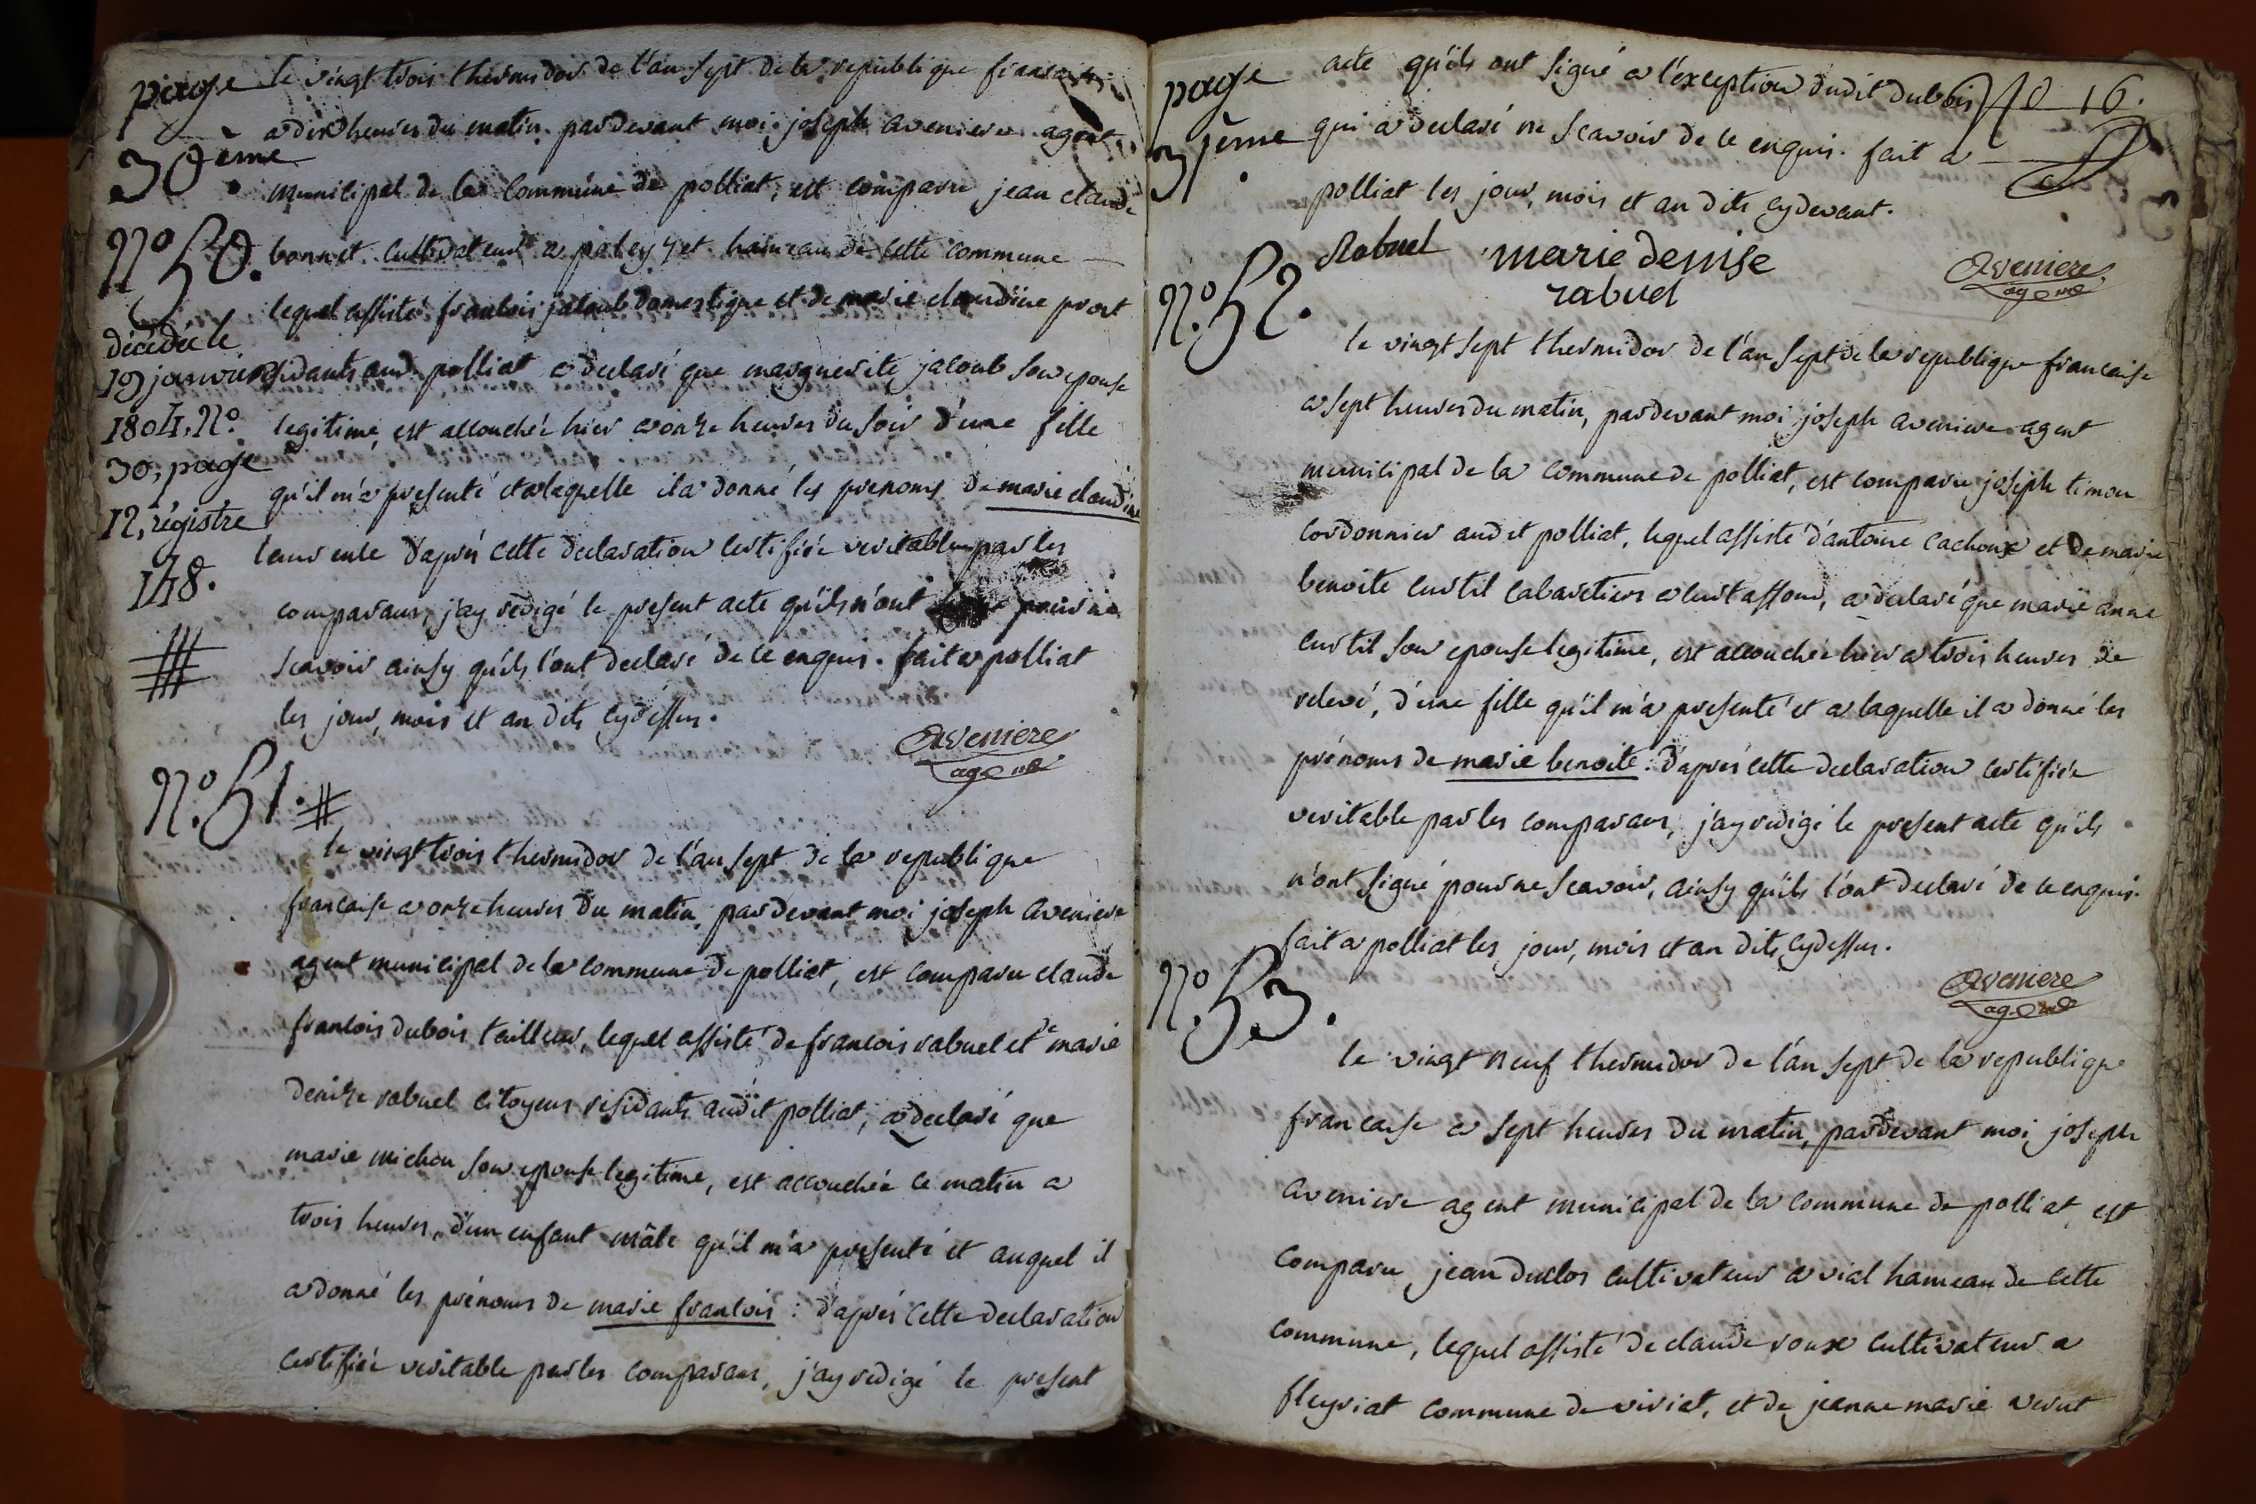 page
30ème
le vingt trois thermidor de l'an sept de la republique francaise
a dix heures du matin pardevant moi joseph aveniere agent
municipal de la commune de polliat, est comparu jean claude
N° 50.
bonnet cultivateur a hameau de cette commune
lequel assisté francois jacoub domestique et de marie claudine prost
décédée le
19 janvier
1804, N°
30, page
12, régistre
148.
residants aud. polliat a declaré que marguerite jacoub son epouse
legitime, est accouchée hier a onze heures du soir d'une fille
qu'il m'a presenté et a laquelle il a donné les prenoms de marie claudine
d'apres cette declaration certifiée veritable par les
comparans, j'ay redigé le present acte qu'ils n'ont pour ne
scavoir ainsy qu'ils l'ont declaré de ce enquis. fait a polliat
les jour, mois et an dits cydessus.
Aveniere
agent
N° 51.
le vingt trois thermidor de l'an sept de la republique
francaise a onze heures du matin, pardevant moi joseph aveniere
agent municipal de la commune de polliat, est comparu claude
francois dubois tailleur, lequel assisté de francois rabuel et de marie
denize rabuel citoyens residants audit polliat, a declaré que
marie michon son epouse legitime, est accouchée ce matin a
trois heures, d'un enfant mâle qu'il m'a presenté et auquel il
a donné les prénoms de marie francois : d'aprés cette declaration
certifiée veritable par les comparans, j'ay redigé le present
page
31ème
acte qu'ils ont signé a l'exception dudit dubois
16.
qui a declaré ne scavoir de ce enquis. fait a
polliat les jour, mois et an dits cydevant.
Rabuel marie denise
rabuel
Aveniere
agent
N° 52.
le vingt sept thermidor de l'an sept de la republique francaise
a sept heures du matin, pardevant moi joseph aveniere agent
municipal de la commune de polliat, est comparu joseph timon
cordonnier audit polliat, lequel assisté d'antoine cachoux et de marie
benoite curtil cabaretiers a curtaffond, a declaré que marie anne
curtil son epouse legitime, est accouchée hier a trois heures de
relevé, d'une fille qu'il m'a presenté et a laquelle il a donné les
prénoms de marie benoite : d'aprés cette declaration certifiée
veritable par les comparans, j'ay redigé le present acte qu'ils
n'ont signé pour ne scavoir, ainsy qu'ils l'ont declaré de ce enquis.
fait a polliat les jour, mois et an dits cydessus.
Aveniere
agent
N° 53.
le vingt neuf thermidor de l'an sept de la republique
francaise a sept heures du matin, pardevant moi joseph
aveniere agent municipal de la commune de polliat, est
comparu jean duclos cultivateur a vial hameau de cette
commune, lequel assisté de claude roux cultivateur a
fleyriat commune de viriat, et de jeanne marie verut